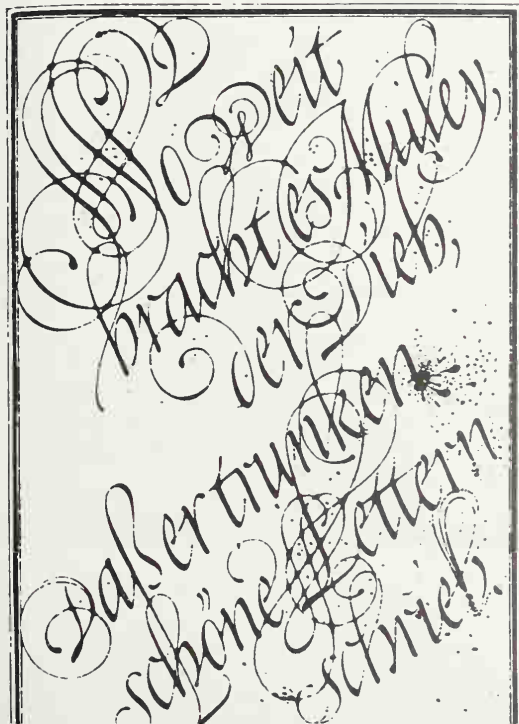 So weit
bracht es Muley,
der Dieb,
Daß er trunken
schöne Lettern
schrieb.